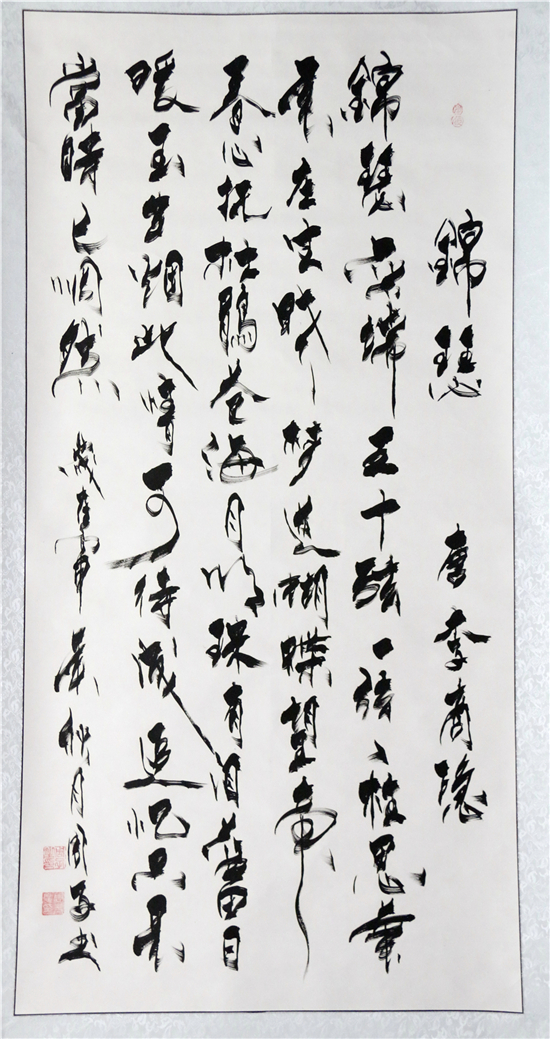 錦瑟 唐李商隱
錦瑟無端五十弦一弦一柱思華
年庄生曉夢迷蝴蝶望帝
春心托杜鵑滄海月明珠有泪藍田日
暖玉生烟此情可待成追忆只是
當時已惘然 歲在年秋月周書